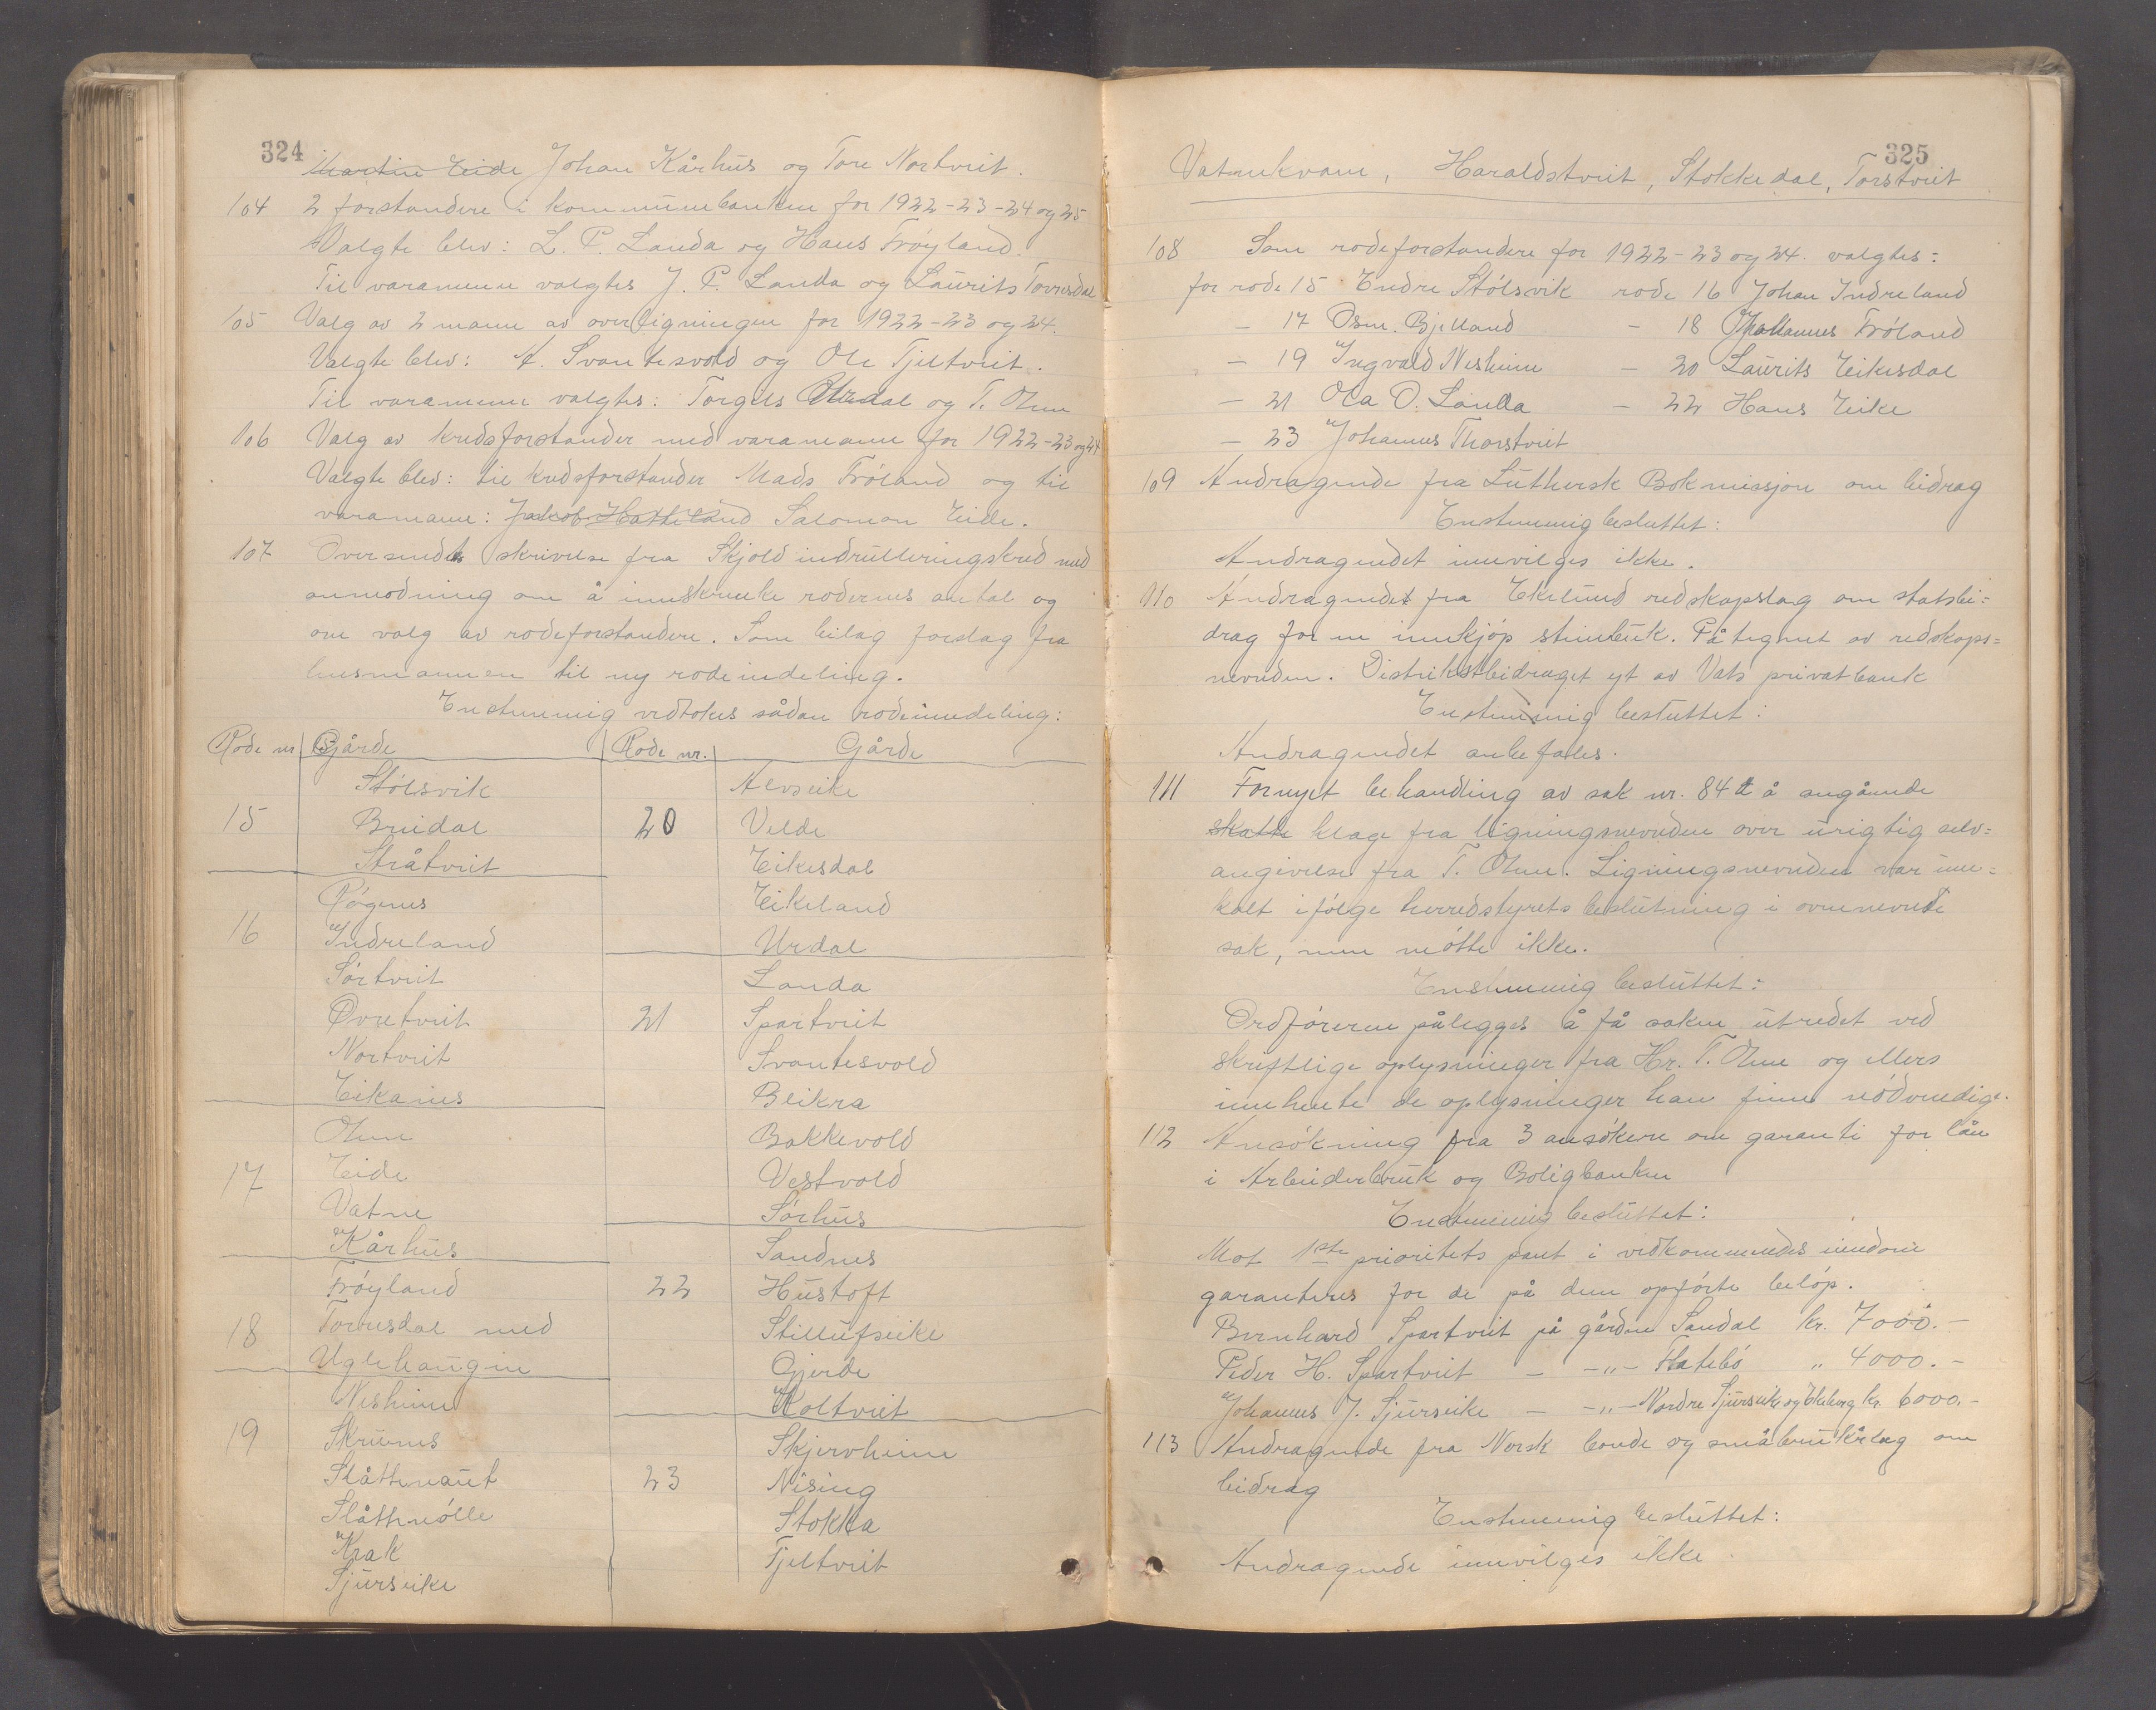 324
Martin Eide Johan Kårhus og Tore Nortveit.
104 2 forstandere i kommunebanken for 1922-23-24 og 25
Valgte blev: L. P. Landa og Hans Frøyland.
Til varamenn valgtes J. P. Landa og Laurits Tovresdal
105 Valg av 2 mann av overligningen for 1922-23 og 24.
Valgte blev: A. Svantesvold og Ole Tjeltveit.
Til varamenn valgtes: Torgils Urdal og T. Ohm
106 Valg av kredsforstander med varamann for 1922-23 og 24
Valgte blev: til kredsforstander Mads Frøland og til
varamann: Jakob Hatteland Salomon Eide.
107 Oversendt skrivelse fra Skjold indrulleringskred med
anmodning om å innskrenke rodernes antal og
om valg av rodeforstandere. Som bilag forslag fra
lensmannen til ny rodeindeling.
Enstemmig vedtokes sådan rodeinndeling:
Rode nr Gårde Rode nr. Gårde
Stölsvik Alvseike
15 Breidal 20 Velde
Stråtveit Eikesdal
Røgenes Eikeland
16 Indreland Urdal
Sørtveit Landa
Øvretveit 21 Spartveit
Nortveit Svantesvold
Eikanes Bleikra
Ohm Bakkevold
17 Eide Vestvold
Vatne Sørhus
Kårhus Sandnes
Frøyland 22 Hustoft
18 Tovresdal med Stillufseike
Uglehaugen Gjerde
Nesheim Koltveit
19 Skrunes Skjervheim
Slåttenaut 23 Nising
Slåttemölle Stokka
Krak Tjeltveit
Sjurseike
325
Vatnekvam, Haraldstveit, Stokkedal, Torstveit
108 Som rodeforstandere for 1922-23 og 24. valgtes:
for rode 15 Endre Stölsvik rode 16 Johan Indreland
- 17 Osm. Bjelland - 18 Johannes Frøland
- 19 Ingvald Nesheim - 20 Laurits Eikesdal
- 21 Ola O. Landa - 22 Hans Eike
- 23 Johannes Thorstveit
109 Andragende fra Luthersk Bokmissjon om bidrag
Enstemmig besluttet:
Andragendet innvilges ikke.
110 Andragendet fra Ekelund redskapslag om statsbi=
drag for en innkjøp stenbuk. Påtegnet av redskaps=
nevnden. Distriktsbidraget yt av Vats privatbank
Enstemmig besluttet:
Andragendet anbefales.
111 Fornyet behandling av sak nr. 84 å angående
skatte klage fra ligningsnevnden over urigtig selv=
angivelse fra T. Ohm. Ligningsnevnden var inn=
kalt ifølge herredstyrets beslutning i ovennevnte
sak, men møtte ikke.
Enstemmig besluttet:
Ordføreren pålegges å få saken utredet ved
skriftlige oplysninger fra Hr. T. Ohm og ellers
innhente de oplysninger han finn nödvendige.
112 Ansökning fra 3 ansökere om garanti for lån
i Arbeiderbruk og Boligbanken
Enstemmig besluttet:
Mot 1ste prioritets pant i vedkommendes eiendom
garanteres for de på dem opførte beløp.
Bernhard Spartveit på gården Sandal kr. 7000.-
Peder H. Spartveit - -"- Flatebö " 4000.-
Johannes J. Sjurseike - -"- Nordre Sjurseike og Ekeberg kr. 6000.-
113 Andragende fra Norsk bonde og småbrukårlag om
bidrag
Enstemmig besluttet:
Andragende innvilges ikke